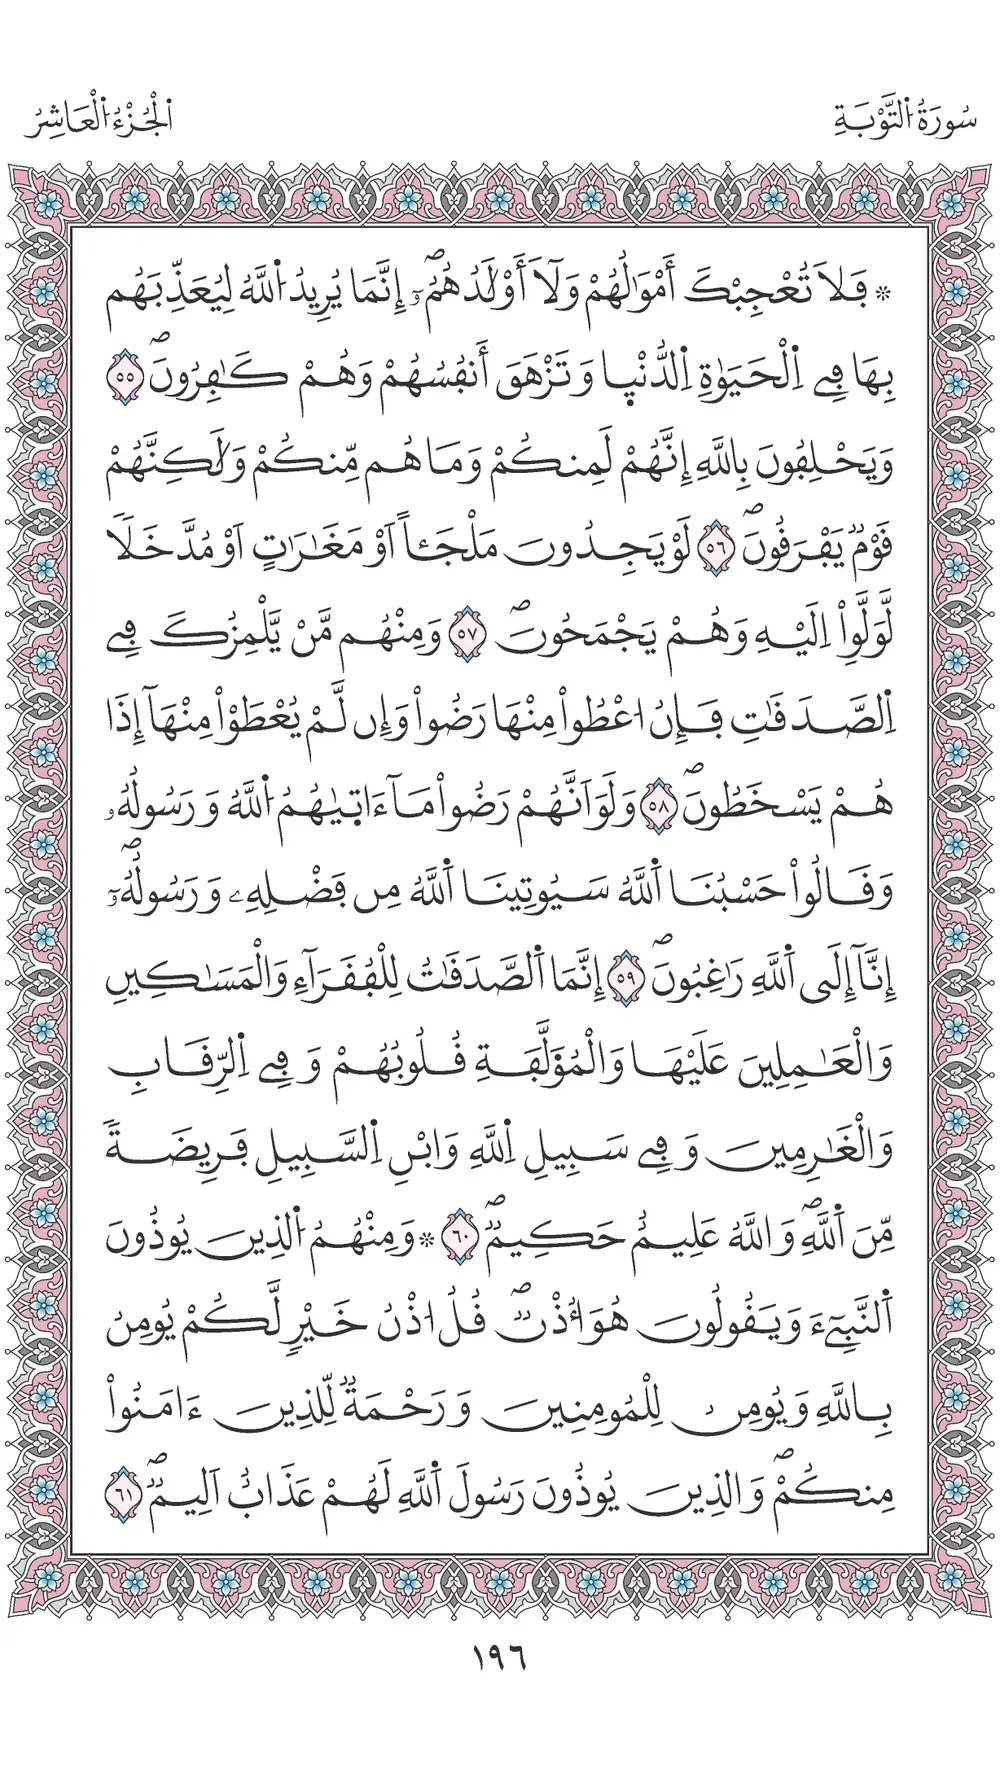 سُورَةُ اُ۬لتَّوْبَةِ
اَ۬لْجُزْءُ اُ۬لْعَاشِرُ
۞ فَلَا تُعْجِبْكَ أَمْوَٰلُهُمْ وَلَآ أَوْلَٰدُهُمُۥٓۖ إِنَّمَا يُرِيدُ اُ۬للَّهُ لِيُعَذِّبَهُم
بِهَا فِے اِ۬لْحَيَوٰةِ اِ۬لدُّنْي۪ا وَتَزْهَقَ أَنفُسُهُمْ وَهُمْ كَٰفِرُونَۖ ٥٥
وَيَحْلِفُونَ بِاللَّهِ إِنَّهُمْ لَمِنكُمْ وَمَا هُم مِّنكُمْ وَلَٰكِنَّهُمْ
قَوْمٞ يَفْرَقُونَۖ ٥٦ لَوْ يَجِدُونَ مَلْجَـٔاً اَوْ مَغَٰرَٰتٍ اَوْ مُدَّخَلاٗ
لَّوَلَّوِاْ اِلَيْهِ وَهُمْ يَجْمَحُونَۖ ٥٧ وَمِنْهُم مَّنْ يَّلْمِزُكَ فِے
اِ۬لصَّدَقَٰتِ فَإِنُ ا۟عْطُواْ مِنْهَا رَضُواْ وَإِن لَّمْ يُعْطَوْاْ مِنْهَآ إِذَا
هُمْ يَسْخَطُونَۖ ٥٨ وَلَوَ اَنَّهُمْ رَضُواْ مَآ ءَات۪يٰهُمُ اُ۬للَّهُ وَرَسُولُهُۥ
وَقَالُواْ حَسْبُنَا اَ۬للَّهُ سَيُوتِينَا اَ۬للَّهُ مِن فَضْلِهِۦ وَرَسُولُهُۥٓۖ
إِنَّآ إِلَى اَ۬للَّهِ رَٰغِبُونَۖ ٥٩ إِنَّمَا اَ۬لصَّدَقَٰتُ لِلْفُقَرَآءِ وَالْمَسَٰكِينِ
وَالْعَٰمِلِينَ عَلَيْهَا وَالْمُؤَلَّفَةِ قُلُوبُهُمْ وَفِے اِ۬لرِّقَابِ
وَالْغَٰرِمِينَ وَفِے سَبِيلِ اِ۬للَّهِ وَابْنِ اِ۬لسَّبِيلِ فَرِيضَةٗ
مِّنَ اَ۬للَّهِۖ وَاللَّهُ عَلِيمٌ حَكِيمٞۖ ٦٠ ۞ وَمِنْهُمُ اُ۬لذِينَ يُوذُونَ
اَ۬لنَّبِےٓءَ وَيَقُولُونَ هُوَ أُذُنٞۖ قُلُ ا۟ذْنُ خَيْرٖ لَّكُمْ يُومِنُ
بِاللَّهِ وَيُومِنُ لِلْمُومِنِينَ وَرَحْمَةٞ لِّلذِينَ ءَامَنُواْ
مِنكُمْۖ وَالذِينَ يُوذُونَ رَسُولَ اَ۬للَّهِ لَهُمْ عَذَابٌ اَلِيمٞۖ ٦١
١٩٦